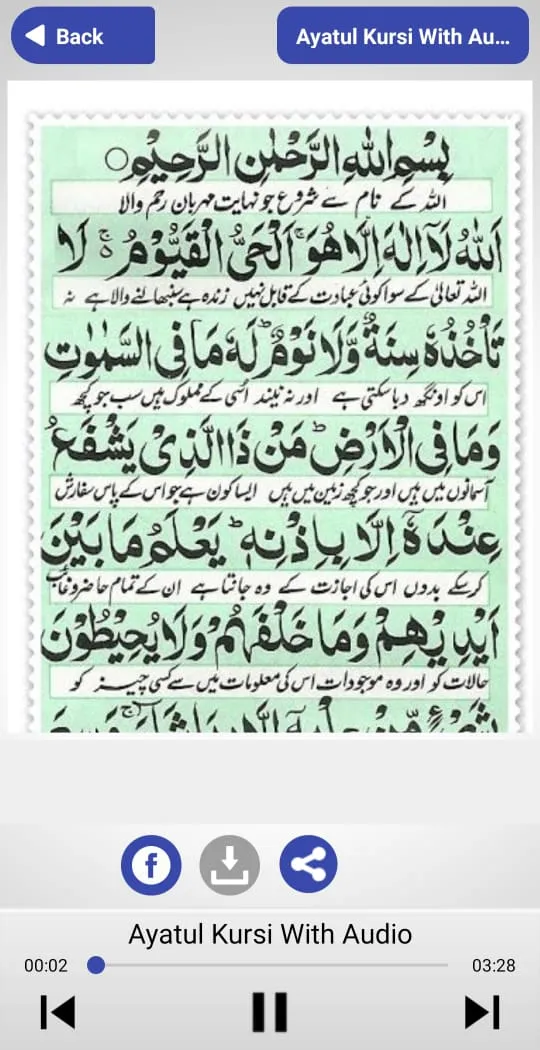 Back
Ayatul Kursi With Au...
بِسْمِ اللهِ الرَّحْمٰنِ الرَّحِيْمِ ○
اللہ کے نام سے شروع جو نہایت مہربان رحم والا
اَللهُ لَآ اِلٰهَ اِلَّا هُوَ ۚ اَلْحَىُّ الْقَيُّوْمُ ۚ لَا
اللہ تعالیٰ کے سوا کوئی عبادت کے قابل نہیں زندہ ہے سنبھالنے والا ہے نہ
تَاْخُذُهٗ سِنَةٌ وَّلَا نَوْمٌ ؕ لَهٗ مَا فِى السَّمٰوٰتِ
اس کو اونگھ دبا سکتی ہے اور نہ نیند اسی کے مملوک ہیں سب جو کچھ
وَمَا فِى الْاَرْضِ ؕ مَنْ ذَا الَّذِىْ يَشْفَعُ
آسمانوں میں ہیں اور جو کچھ زمین میں ہیں ایسا کون ہے جو اس کے پاس سفارش
عِنْدَهٗٓ اِلَّا بِاِذْنِهٖ ؕ يَعْلَمُ مَا بَيْنَ
کرسکے بدوں اس کی اجازت کے وہ جانتا ہے ان کے تمام حاضر و غائب
اَيْدِيْهِمْ وَمَا خَلْفَهُمْ وَلَا يُحِيْطُوْنَ
حالات کو اور وہ موجودات اس کی معلومات میں سے کسی چیز کو
Ayatul Kursi With Audio
00:02
03:28